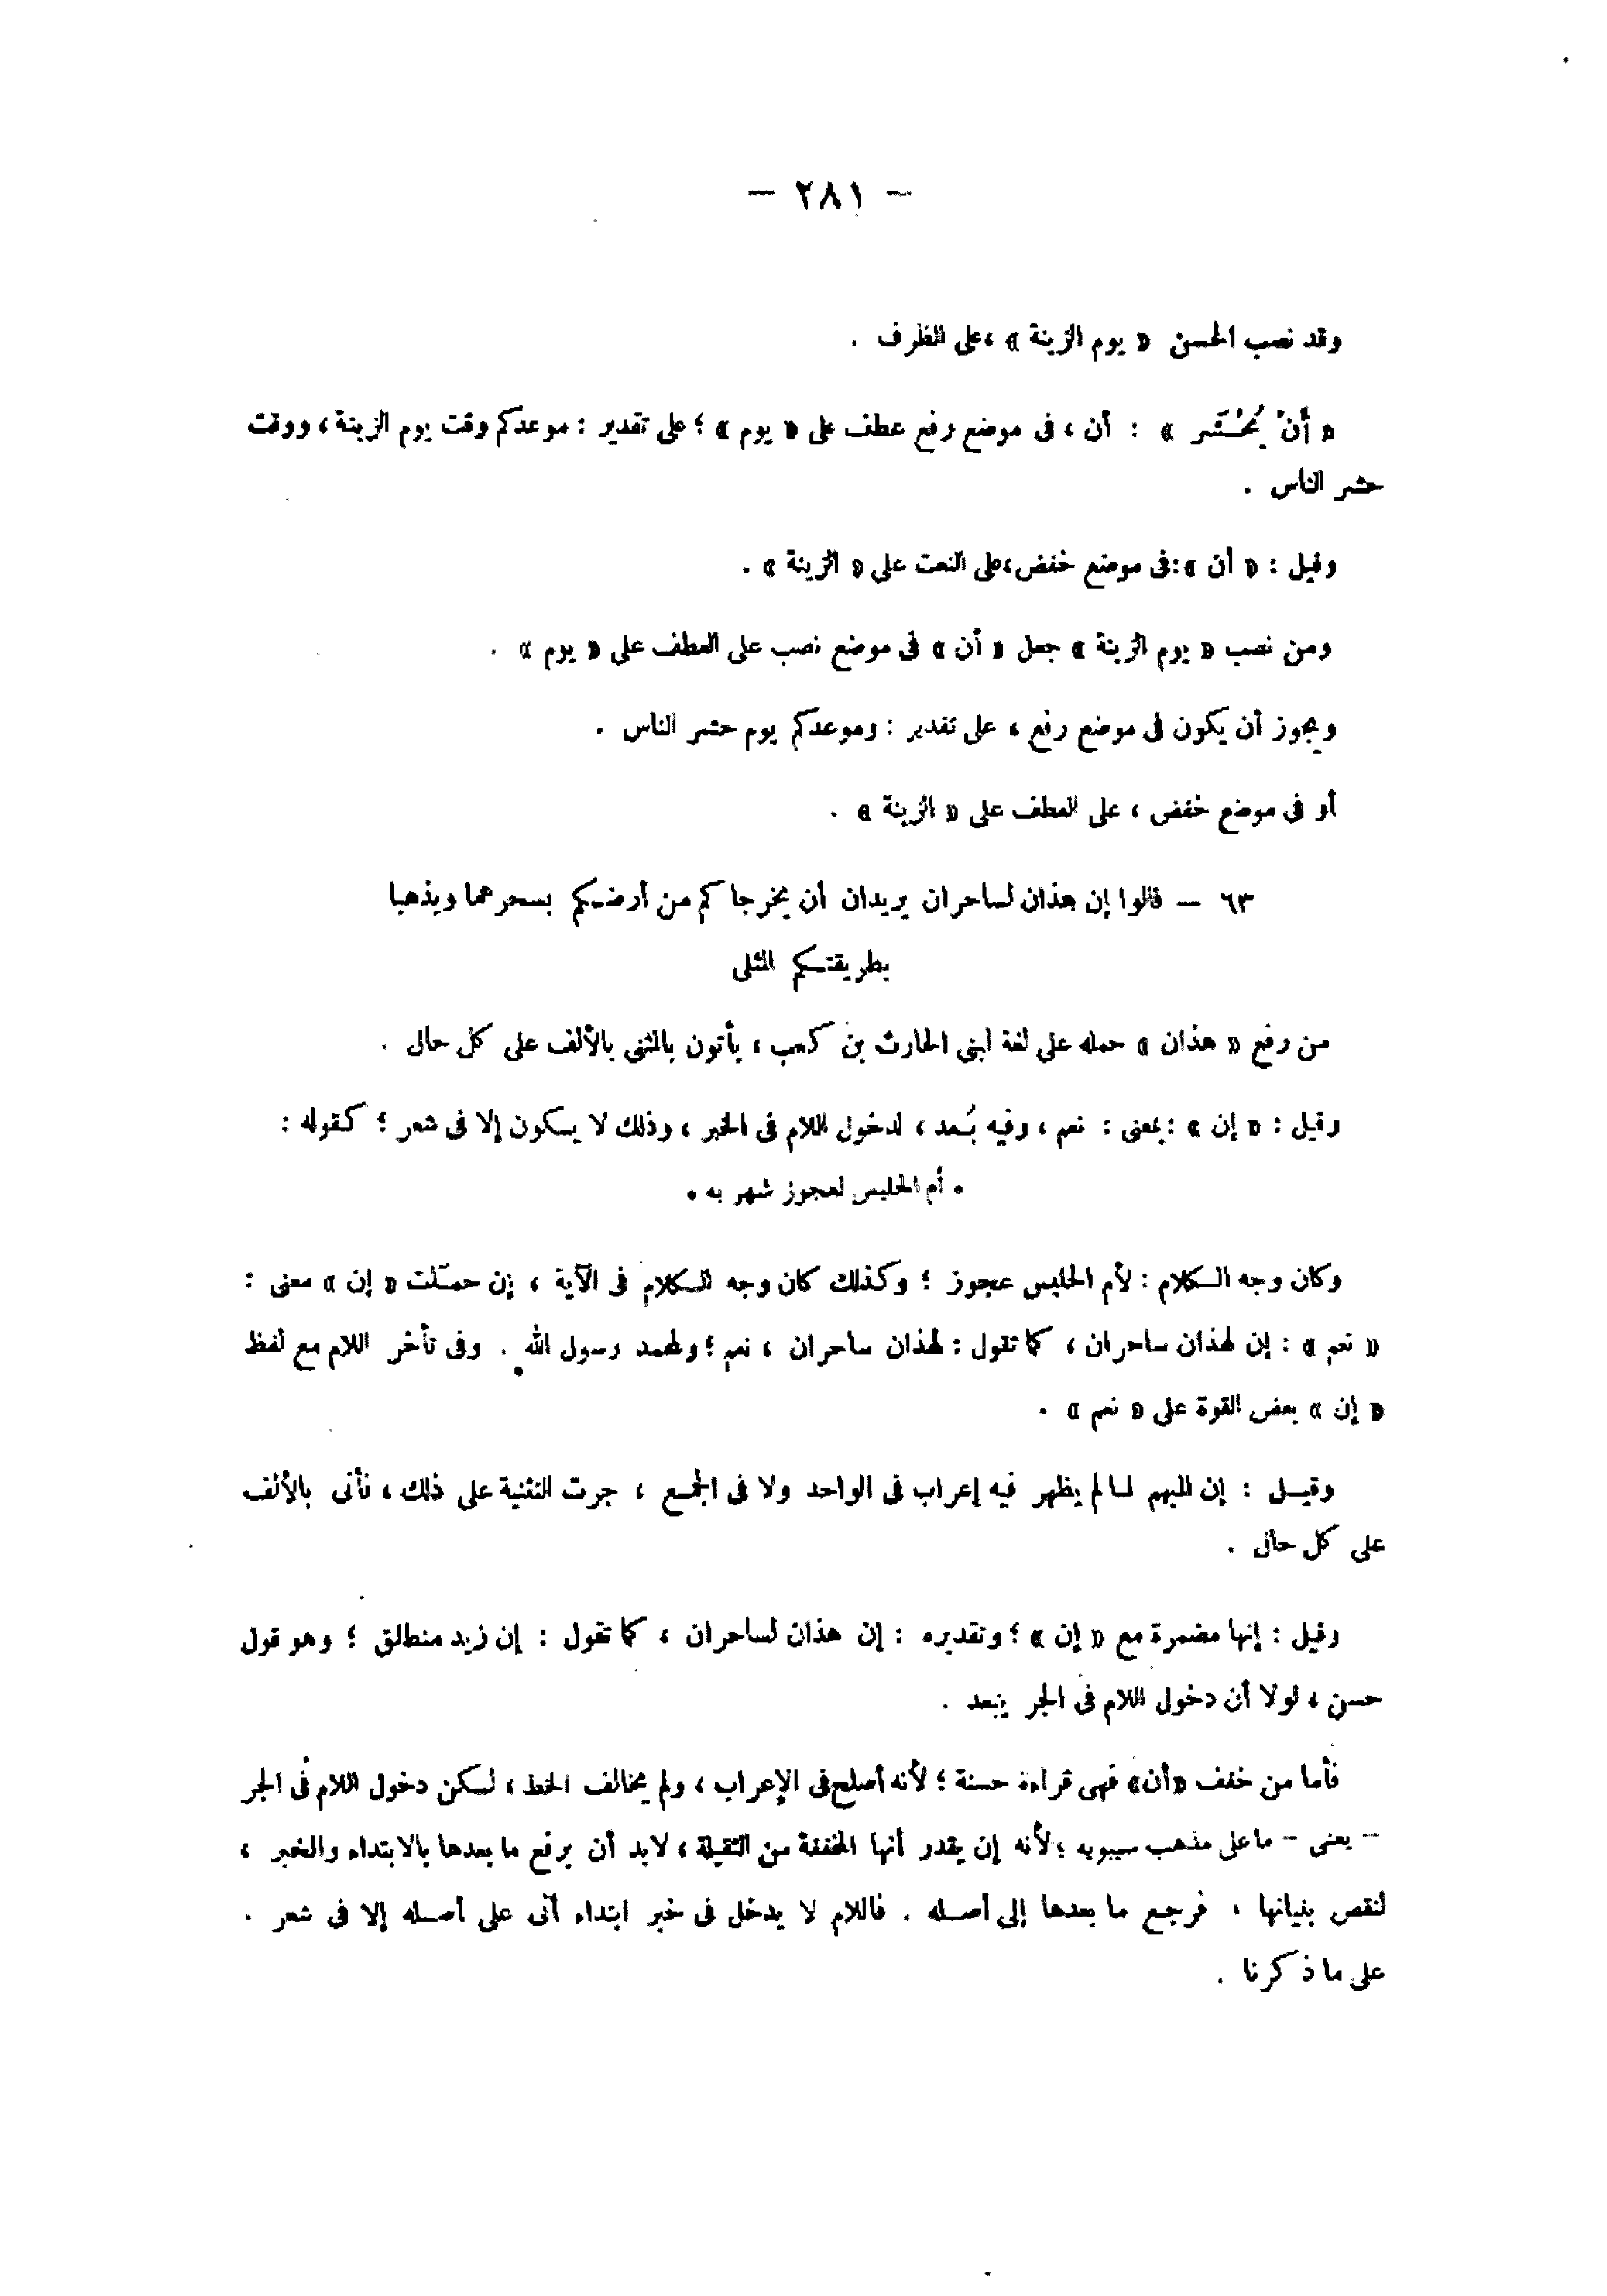 — ٢٨١ —
وقد نصب الحسن « يوم الزينة » ،على الظرف .
« أَنْ يُحْشَر » : أن ، فى موضع رفع عطف على « يوم » ؛ على تقدير : موعدكم وقت يوم الزينة ، ووقت
حشر الناس .
وقيل : « أن »:فى موضع خفض،على النعت على « الزينة » .
ومن نصب « يوم الزينة » جعل « أن » فى موضع نصب على العطف على « يوم » .
ويجوز أن يكون فى موضع رفع ، على تقدير : وموعدكم يوم حشر الناس .
أو فى موضع خفض ، على العطف على « الزينة » .
٦٣ — قالوا إن هذان لساحران يريدان أن يخرجاكم من أرضكم بسحرهما ويذهبا
بطريقتكم المثلى
من رفع « هذان » حمله على لغة لبنى الحارث بن كعب ، يأتون بالمثنى بالألف على كل حال .
وقيل : « إن » : بمعنى : نعم ، وفيه بُعد ، لدخول اللام فى الخبر ، وذلك لا يكون إلا فى شعر ؛ كقوله :
• أم الحليس لعجوز شهربه •
وكان وجه الكلام : لأم الحليس عجوز ؛ وكذلك كان وجه الكلام فى الآية ، إن حمَلت « إن » معنى :
« نعم » : إن لهذان ساحران ، كما تقول : لهذان ساحران ، نعم ؛ ولمحمد رسول الله . وفى تأخر اللام مع لفظ
« إن » بعض القوة على « نعم » .
وقيل : إن المبهم لما لم يظهر فيه إعراب فى الواحد ولا فى الجمع ، جرت التثنية على ذلك ، فأتى بالألف
على كل حال .
وقيل : إنها مضمرة مع « إن » ؛ وتقديره : إن هذان لساحران ، كما تقول : إن زيد منطلق ؛ وهو قول
حسن ، لولا أن دخول اللام فى الجر يبعد .
فأما من خفف «أن» فهى قراءة حسنة ؛ لأنه أصلح فى الإعراب ، ولم يخالف الخط ، لكن دخول اللام فى الجر
– يعنى – ما على مذهب سيبويه ؛ لأنه إن يقدر أنها المخففة من الثقيلة ، لابد أن يرفع ما بعدها بالابتداء والخبر ،
لنقص بنيانها ، فرجع ما بعدها إلى أصله . فاللام لا يدخل فى خبر ابتداء أتى على أصله إلا فى شعر .
على ما ذكرنا .